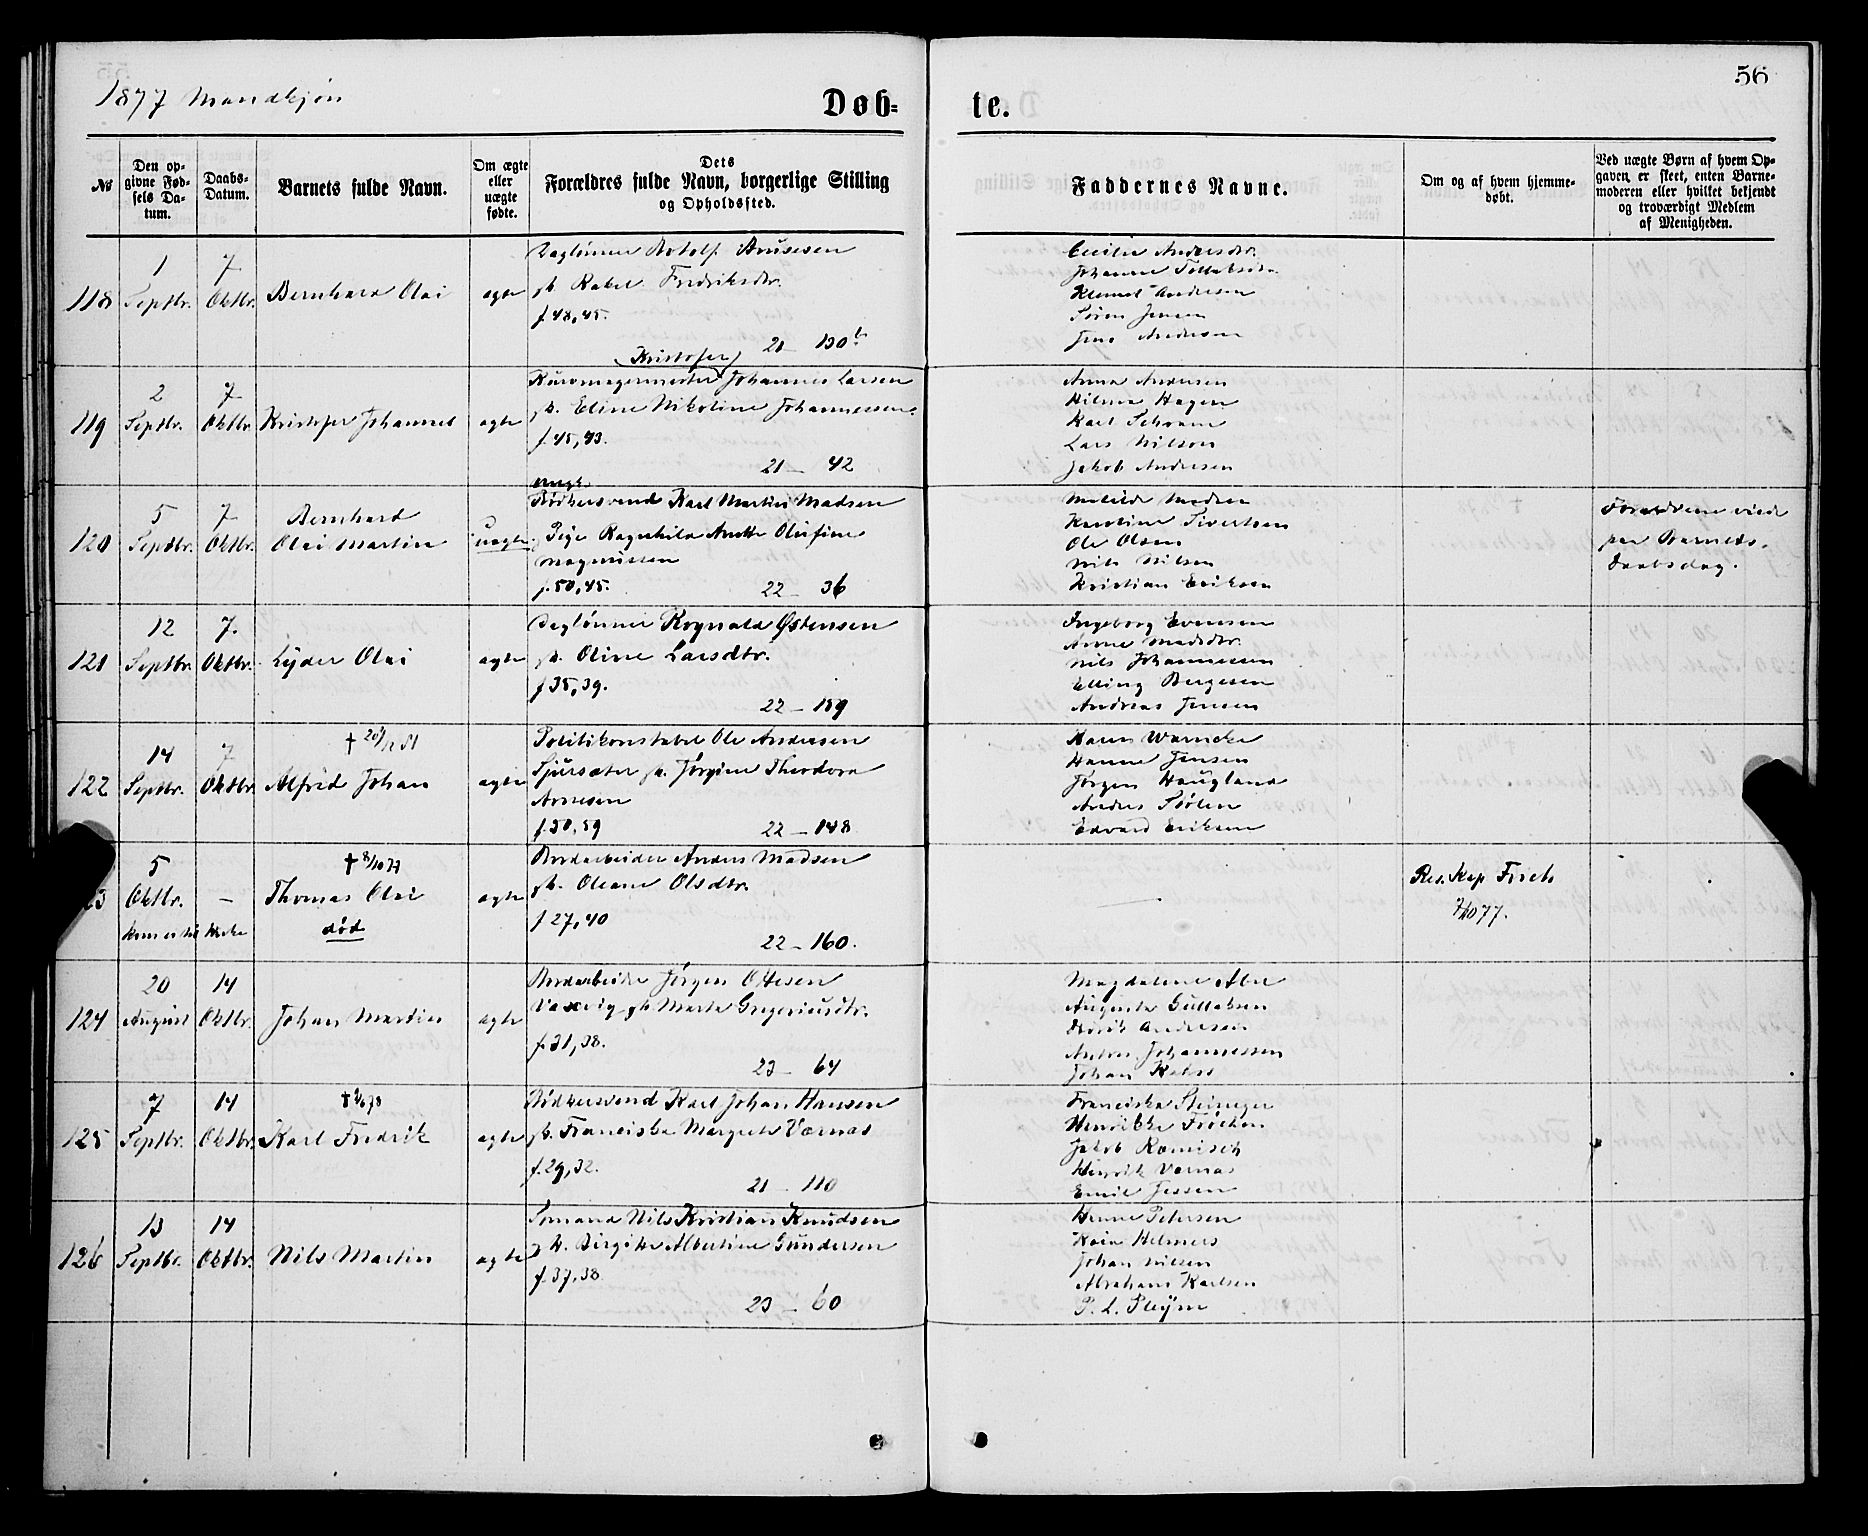 1877 Mandkjøn
Døb-
te.
56
No
Den op-
givne Fød-
sels Da-
tum.
Daabs-
Datum.
Barnets fulde Navn.
Om ægte
eller
uægte
fødte.
Dets
Forældres fulde Navn, borgerlige Stilling
og Opholdssted.
Faddernes Navne.
Om og af hvem hjemme-
døbt.
Ved uægte Børn af hvem Op-
gaven er skeet, enten Barne-
moderen eller hvilket bekjendt
og troværdigt Medlem
af Menigheden.
118
1
Septbr.
7
Oktbr.
Bernhard Olai
ægte
Daglønner Rotolf
Rakel Fredriksdtr.
f. 48, 45.
21 — 130b
Cecilie Andersdtr.
Johanne
Klemet Andersen
Søren Jensen
Jens Andersen
119
2
Septbr.
7
Oktbr.
Kristofer Johannes
ægte
(Kristofer)
Johannes Larsen
Eline Nikoline Johannessen
f. 45, 43.
21 — 42
Anna Andersen
Hilma Hagen
Karl Schram
Lars Nilson
Jakob Andersen
120
5
Septbr.
7
Oktbr.
Bernhard
Olai Martin
uægte
ungk.
Bødkersvend Karl Martin Madsen
Pige Ragnhild Anette Olufine
Magnussen
f. 50, 45.
22 — 36
Matilde Madsen
Karoline Sivertsen
Ole Olsen
Nils Nilsen
Kristian Eriksen
Forældrene viede
paa Barnets
Daabsdag.
121
12
Septbr.
7.
Oktbr.
Lyder Olai
ægte
Daglønner Rognald Østensen
Oline Larsdtr.
f. 35, 39.
22 — 159
Ingeborg Evensen
Anne Madsdtr.
Nils Johannessen
Elling Bergesen
Andreas Jensen
122
14
Septbr.
7
Oktbr.
† 20/12 81
Alfred Johan
ægte
Politikonstabel Ole Andersen
Sjursæter Jørgine Theodora
Arnesen
f. 50, 59
22 — 148
Karen Warncke
Hanne Jensen
Jørgen Haugland
Anders Sørlen
Edvard Eriksen
5
Oktbr.
—
† 8/10 77
Thomas Olai
død
ægte
Jordarbeider Anders Madsen
Oleane Olsdtr.
f 27, 40
22 — 160.
—
Res. Kap Friis
7/10 77.
124
20
August
14
Oktbr.
Johan Martin
ægte
Jordarbeider Jørgen Ottesen
Vaxevig Marta Gregoriusdtr.
f. 31, 38.
23 — 64
Magdalene Abel
Augusta Gullaksen
Henrik Andersen
Anders Johannessen
Johan
125
7
Septbr.
14
Oktbr.
Karl Fredrik
ægte
Bødkersvend Karl Johan Hansen
Franciska Margrete Værnæs
f. 29, 32.
21 — 110
Franciska Steineger
Henrikke Frøchen
Jakob Romisch
Henrik Værnæs
Emil Jessen
126
13
Septbr.
14
Oktbr.
Nils Martin
ægte
Sømand Nils Kristian Knudsen
Birgitte Albertine Gundersen
f. 37, 38.
23 — 60
Hanne Petersen
Kaia Helmers
Johan Nilsen
Abrahams Karlsen
P. L. Pleym